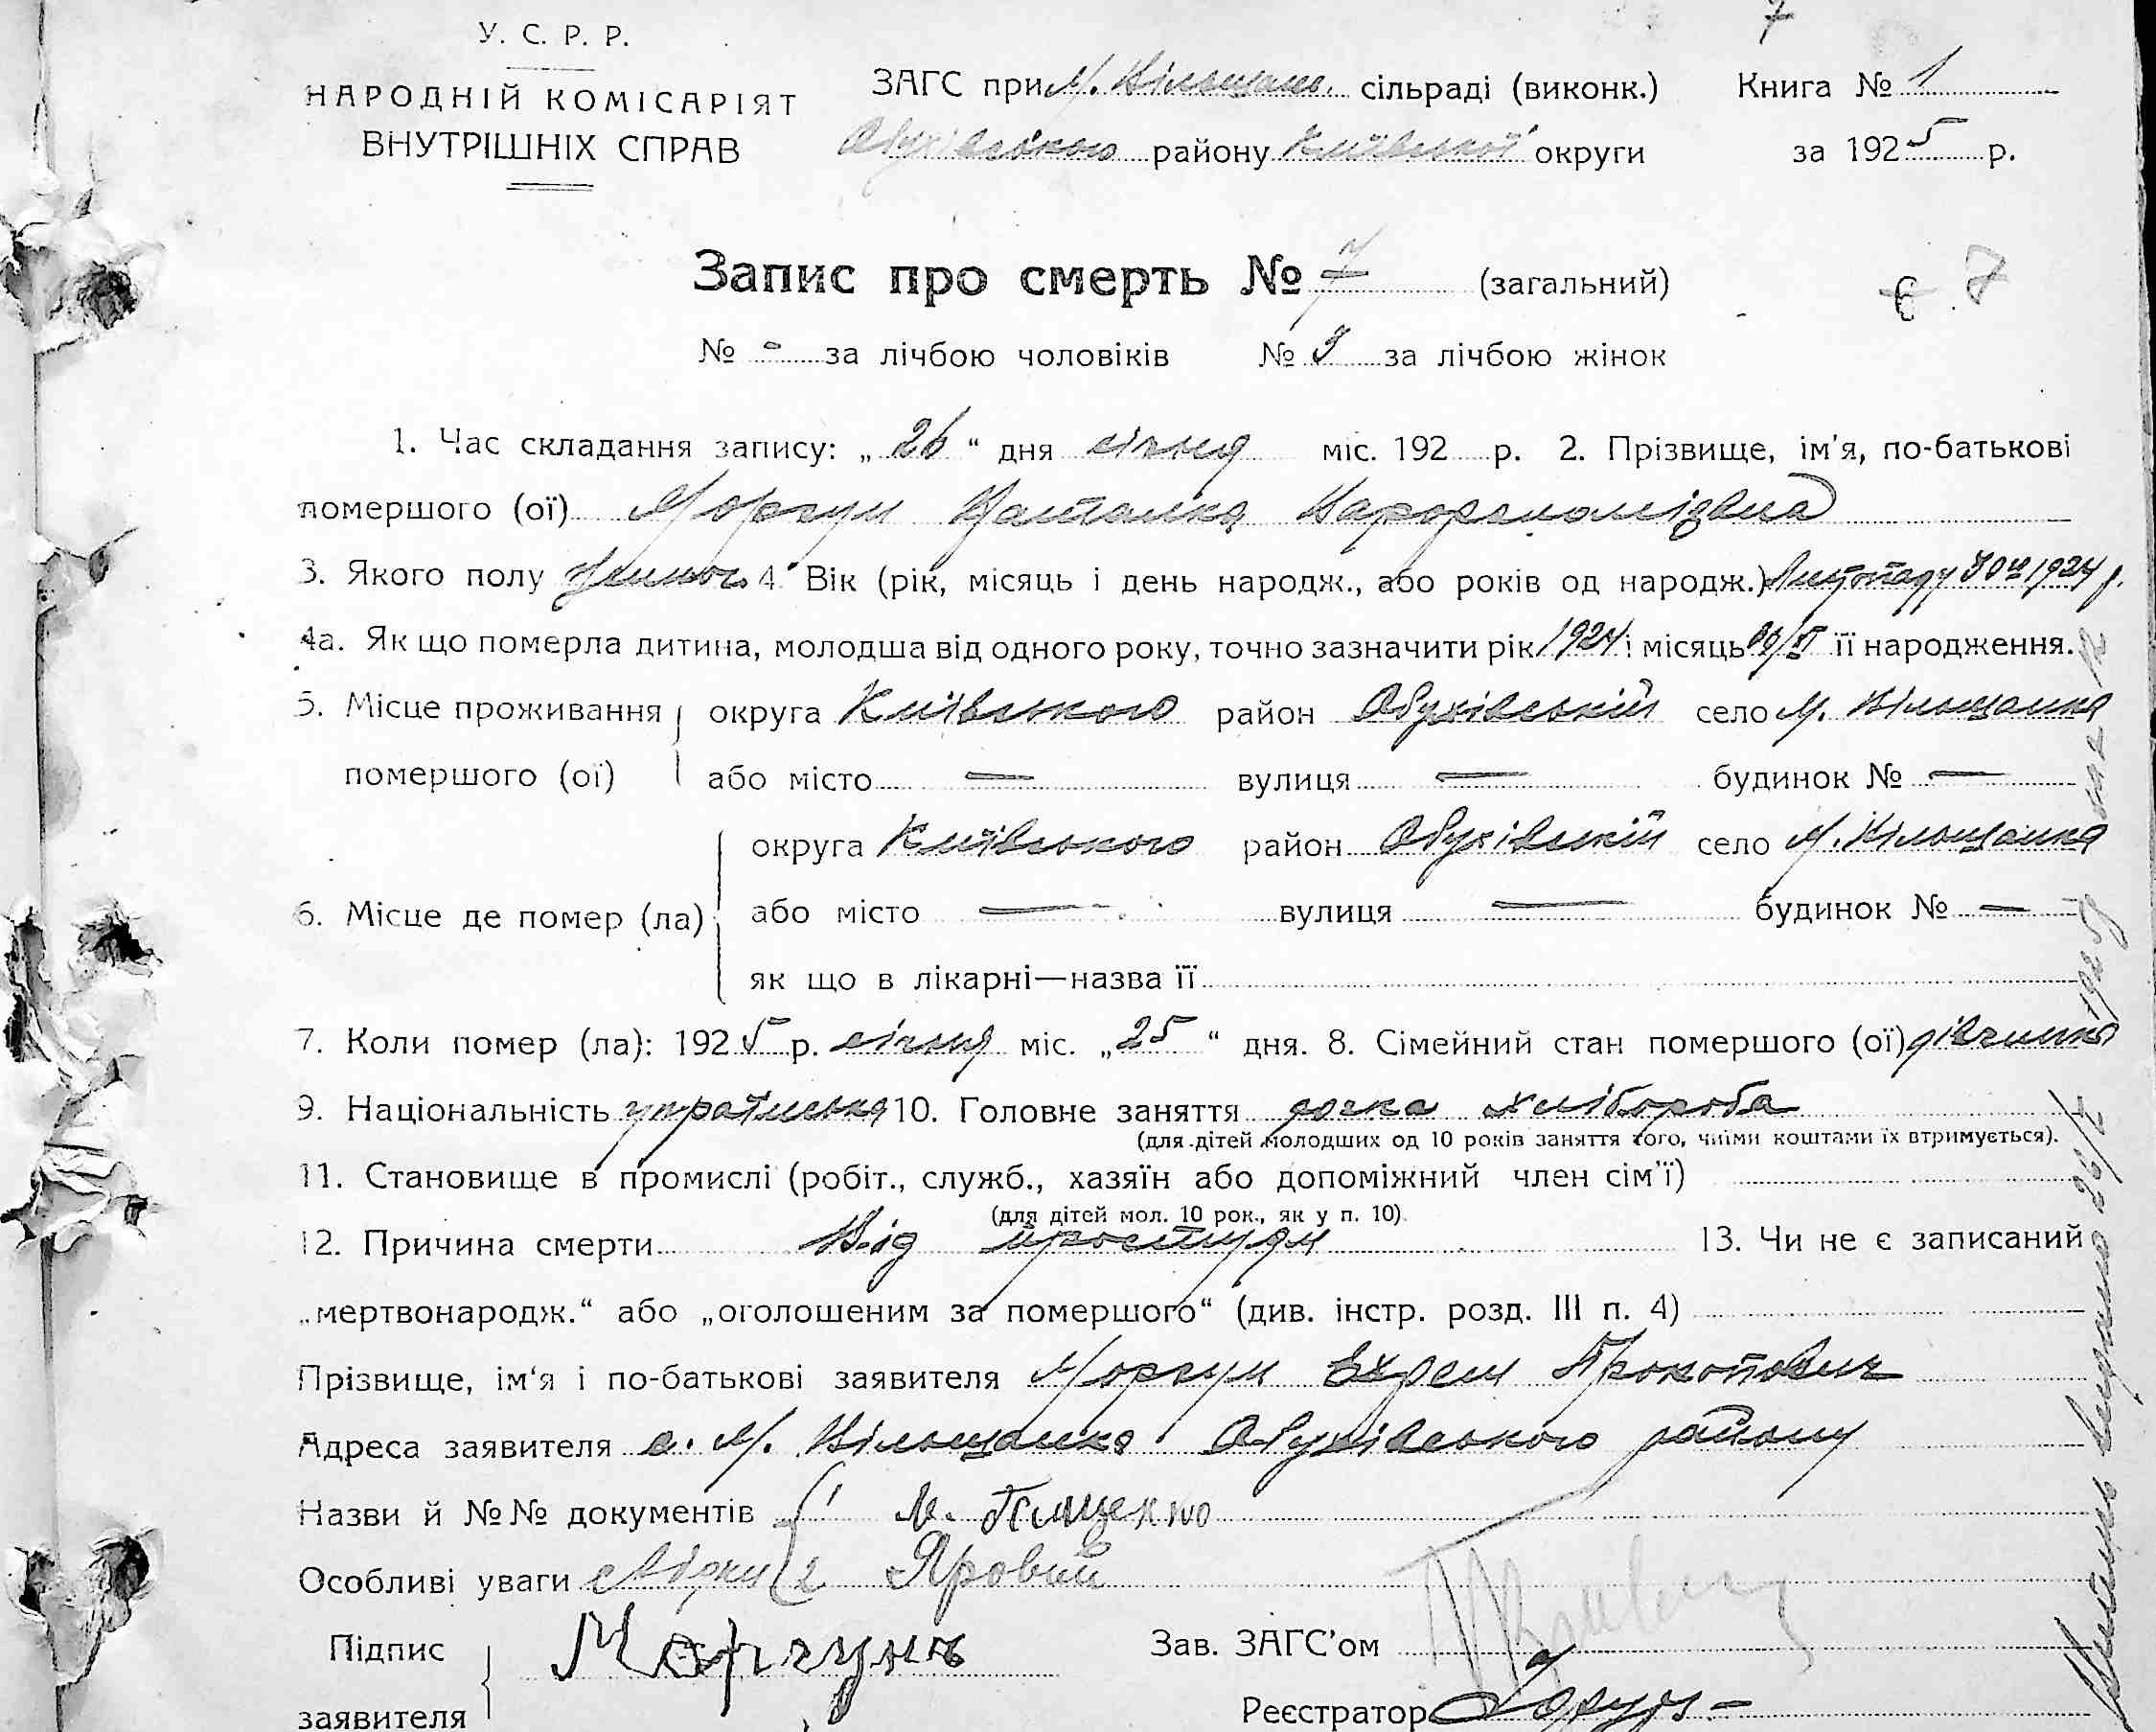 7
У. С. Р. Р.
НАРОДНІЙ КОМІСАРІЯТ
ВНУТРІШНІХ СПРАВ
ЗАГС при М. Вільшан. сільраді (виконк.) Книга № 1
Обухівського району Київської округи за 1925 р.
Запис про смерть № 7 (загальний) 7
№ - за лічбою чоловіків № 3 за лічбою жінок
1. Час складання запису: „ 26 “ дня січня міс. 192 р. 2. Прізвище, ім'я, по-батькові
помершого (ої) Моргун Наталка
3. Якого полу 4. Вік (рік, місяць і день народж., або років од народж.) Листопаду 30го 1924 р.
4а. Як що померла дитина, молодша від одного року, точно зазначити рік 1924 і місяць її народження.
5. Місце проживання округа Київського район Обухівський село М. Вільшанка
помершого (ої) або місто — вулиця — будинок № —
округа Київського район Обухівський село М. Вільшанка
6. Місце де помер (ла) або місто — вулиця — будинок № —
як що в лікарні—назва її
7. Коли помер (ла): 1925 р. січня міс. „25 “ дня. 8. Сімейний стан помершого (ої) дівчинка
9. Національність українська 10. Головне заняття дочка хлібороба
(для дітей молодших од 10 років заняття того, чиїми коштами їх втримується).
11. Становище в промислі (робіт., служб., хазяїн або допоміжний член сім'ї)
(для дітей мол. 10 рок., як у п. 10).
12. Причина смерти Від простуди 13. Чи не є записаний
„мертвонародж.“ або „оголошеним за помершого“ (див. інстр. розд. III п. 4)
Прізвище, ім'я і по-батькові заявителя Моргун Єхрем Прокопович
Адреса заявителя с. М. Вільшанка Обухівського району
Назви й №№ документів 1 М.
Особливі уваги Свідки 2 Яровий
Підпис Моргунъ Зав. ЗАГС'ом
заявителя Реєстратор